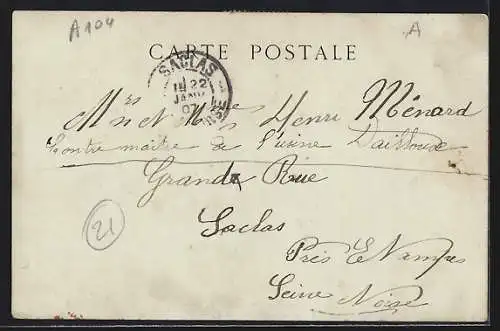 A 104
A
CARTE POSTALE
SACLAS
22
JANV
07
Mrs et Mme Henri Ménard
Contre maître de l'usine
Grande Rue
Saclas
Près Etampes
Seine
21